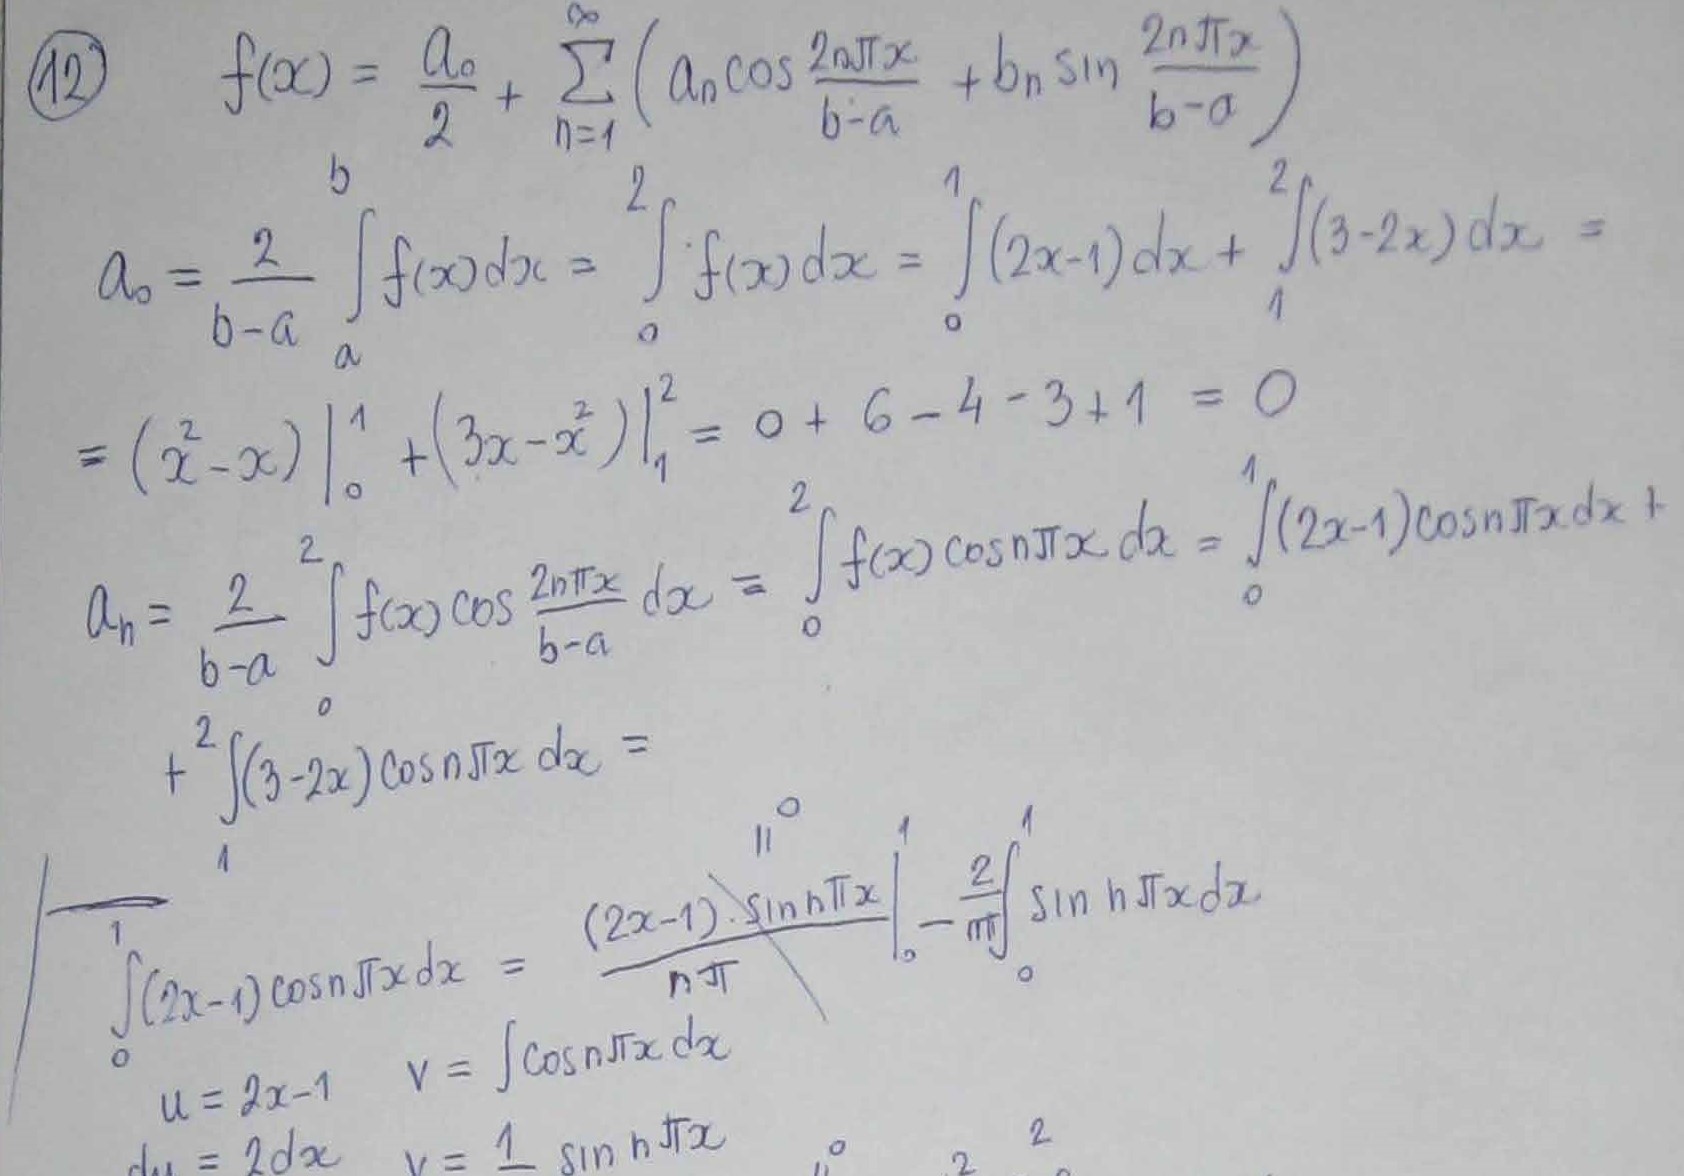 12 f(x) = a₀/2 + ∑_{n=1}^{∞} (aₙ cos 2nπx/(b-a) + bₙ sin 2nπx/(b-a))
a₀ = 2/(b-a) ∫_a^b f(x)dx = ∫_0^2 f(x)dx = ∫_0^1 (2x-1)dx + ∫_1^2 (3-2x)dx =
= (x²-x)|_0^1 + (3x-x²)|_1^2 = 0 + 6 - 4 - 3 + 1 = 0
aₙ = 2/(b-a) ∫_0^2 f(x) cos 2nπx/(b-a) dx = ∫_0^2 f(x) cosnπx dx = ∫_0^1 (2x-1)cosnπxdx +
+ ∫_1^2 (3-2x)cosnπx dx =
∫_0^1 (2x-1)cosnπxdx = (2x-1)·sinnπx/nπ |_0^1 - 2/nπ ∫_0^1 sin nπxdx
= 0
u = 2x-1 v = ∫cosnπxdx
du = 2dx v = 1 sin nπx